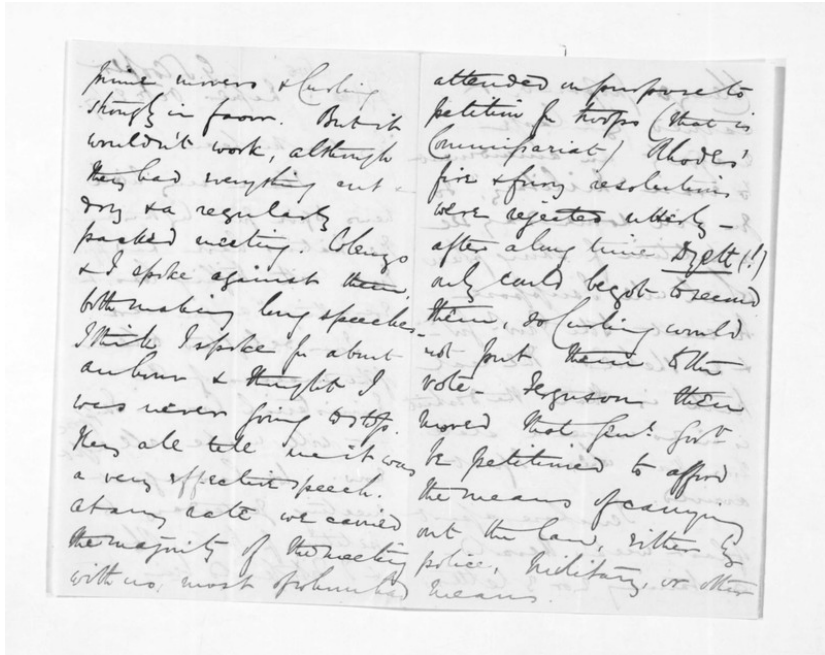 prime movers & Curling
strongly in favor. But it
wouldn't work, although
they had everything cut &
dry & a regularly
packed meeting. Colenso
& I spoke against them,
both making long speeches –
I think I spoke for about
an hour & thought I
was never going to stop.
They all tell me it was
a very effective speech.
At any rate we carried
the majority of the meeting
with us, most of whom had
attended on purpose to
petition for troops (that is
Commissariat) Rhodes'
fire & fury resolutions
were rejected utterly –
after a long time Dyett (!)
only could be got to second
them, so Curling would
not put them to the
vote – Ferguson then
moved that Genl. Govt
be petitioned to afford
the means of carrying
out the law, either by
police, military, or other
means.